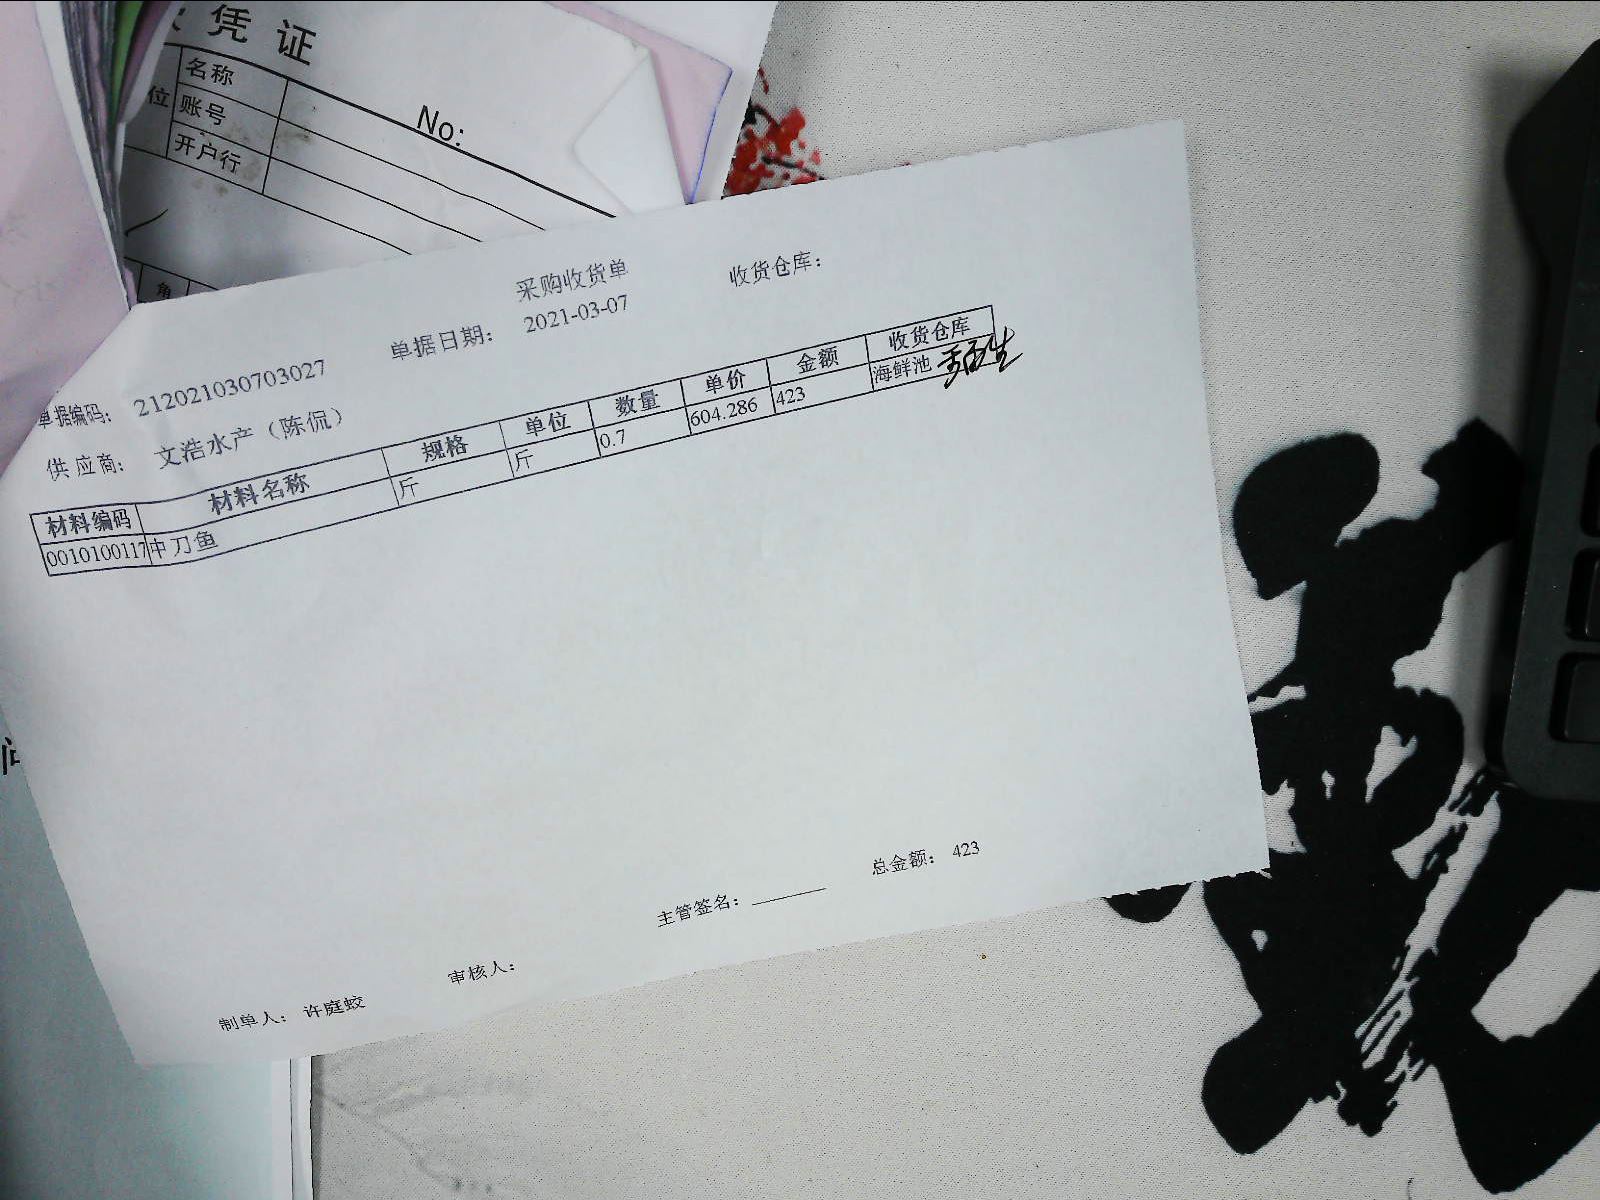 凭证
名称
位 账号
开户行
No:
角
采购收货单
收货仓库：
单据编码： 212021030703027 单据日期： 2021-03-07
供应商： 文浩水产（陈侃）
材料编码 材料名称 规格 单位 数量 单价 金额 收货仓库
0010100117 中刀鱼 斤 斤 0.7 604.286 423 海鲜池
总金额： 423
主管签名：
审核人：
制单人： 许庭蛟